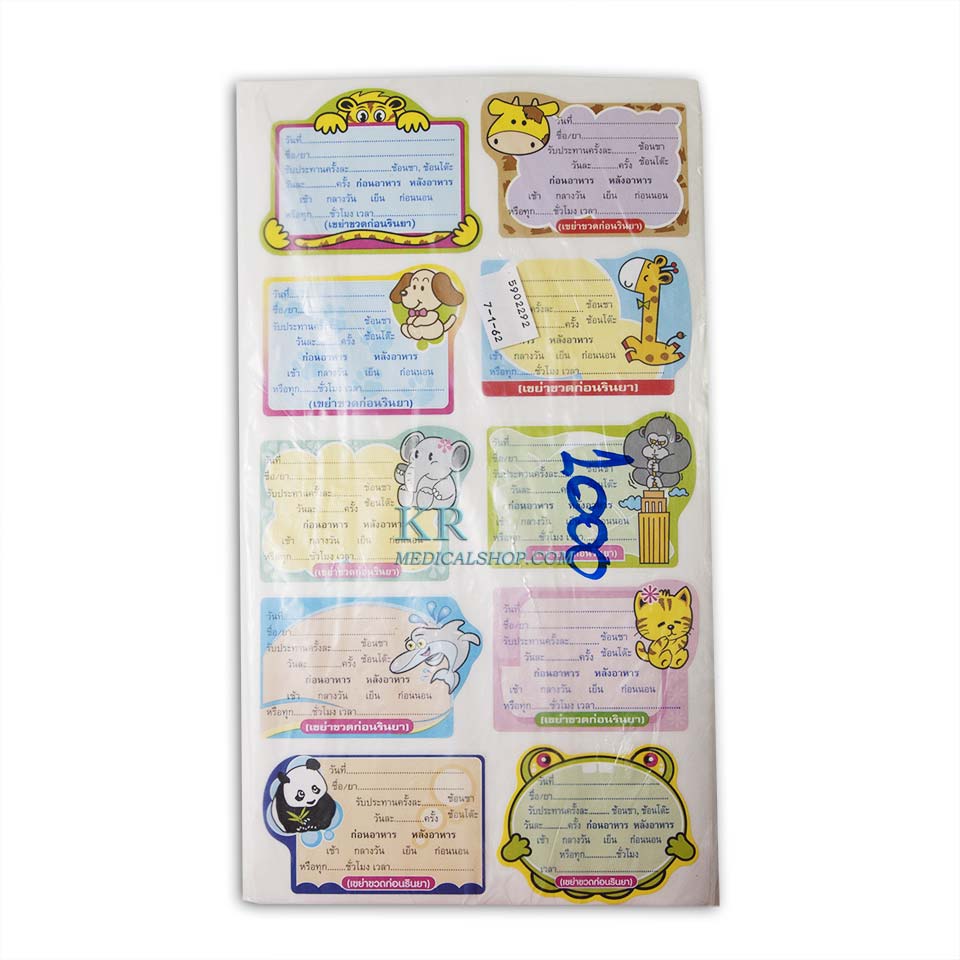 วันที่
ชื่อ/ยา
รับประทานครั้งละ ช้อนชา, ช้อนโต๊ะ
วันละ ครั้ง ก่อนอาหาร หลังอาหาร
เช้า กลางวัน เย็น ก่อนนอน
หรือทุก ชั่วโมง เวลา
(เขย่าขวดก่อนรินยา)
วันที่
ชื่อ/ยา
รับประทานครั้งละ ช้อนชา
วันละ ครั้ง ช้อนโต๊ะ
ก่อนอาหาร หลังอาหาร
เช้า กลางวัน เย็น ก่อนนอน
หรือทุก ชั่วโมง เวลา
(เขย่าขวดก่อนรินยา)
วันที่
ชื่อ/ยา
รับประทานครั้งละ ช้อนชา
วันละ ครั้ง ช้อนโต๊ะ
ก่อนอาหาร หลังอาหาร
เช้า กลางวัน เย็น ก่อนนอน
หรือทุก ชั่วโมง เวลา
(เขย่าขวดก่อนรินยา)
5902292
7-1-62
ช้อนชา
ครั้ง ช้อนโต๊ะ
หลังอาหาร
เช้า กลางวัน เย็น ก่อนนอน
หรือทุก ชั่วโมง เวลา
(เขย่าขวดก่อนรินยา)
วันที่
ชื่อ/ยา
รับประทานครั้งละ ช้อนชา
วันละ ครั้ง ช้อนโต๊ะ
ก่อนอาหาร หลังอาหาร
เช้า กลางวัน เย็น ก่อนนอน
หรือทุก ชั่วโมง เวลา
(เขย่าขวดก่อนรินยา)
วันที่
ชื่อ/ยา
รับประทานครั้งละ ช้อนชา
วันละ ครั้ง ช้อนโต๊ะ
ก่อนอาหาร หลังอาหาร
เช้า กลางวัน เย็น ก่อนนอน
หรือทุก ชั่วโมง เวลา
1000
KR
MEDICALSHOP.COM
วันที่
ชื่อ/ยา
รับประทานครั้งละ ช้อนชา
วันละ ครั้ง ช้อนโต๊ะ
ก่อนอาหาร หลังอาหาร
เช้า กลางวัน เย็น ก่อนนอน
หรือทุก ชั่วโมง เวลา
(เขย่าขวดก่อนรินยา)
วันที่
ชื่อ/ยา
รับประทานครั้งละ ช้อนชา
วันละ ครั้ง ช้อนโต๊ะ
ก่อนอาหาร หลังอาหาร
เช้า กลางวัน เย็น ก่อนนอน
หรือทุก ชั่วโมง เวลา
(เขย่าขวดก่อนรินยา)
วันที่
ชื่อ/ยา
รับประทานครั้งละ ช้อนชา
วันละ ครั้ง ช้อนโต๊ะ
ก่อนอาหาร หลังอาหาร
เช้า กลางวัน เย็น ก่อนนอน
หรือทุก ชั่วโมง เวลา
(เขย่าขวดก่อนรินยา)
วันที่
ชื่อ/ยา
รับประทานครั้งละ ช้อนชา, ช้อนโต๊ะ
วันละ ครั้ง ก่อนอาหาร หลังอาหาร
เช้า กลางวัน เย็น ก่อนนอน
หรือทุก ชั่วโมง
เวลา
(เขย่าขวดก่อนรินยา)